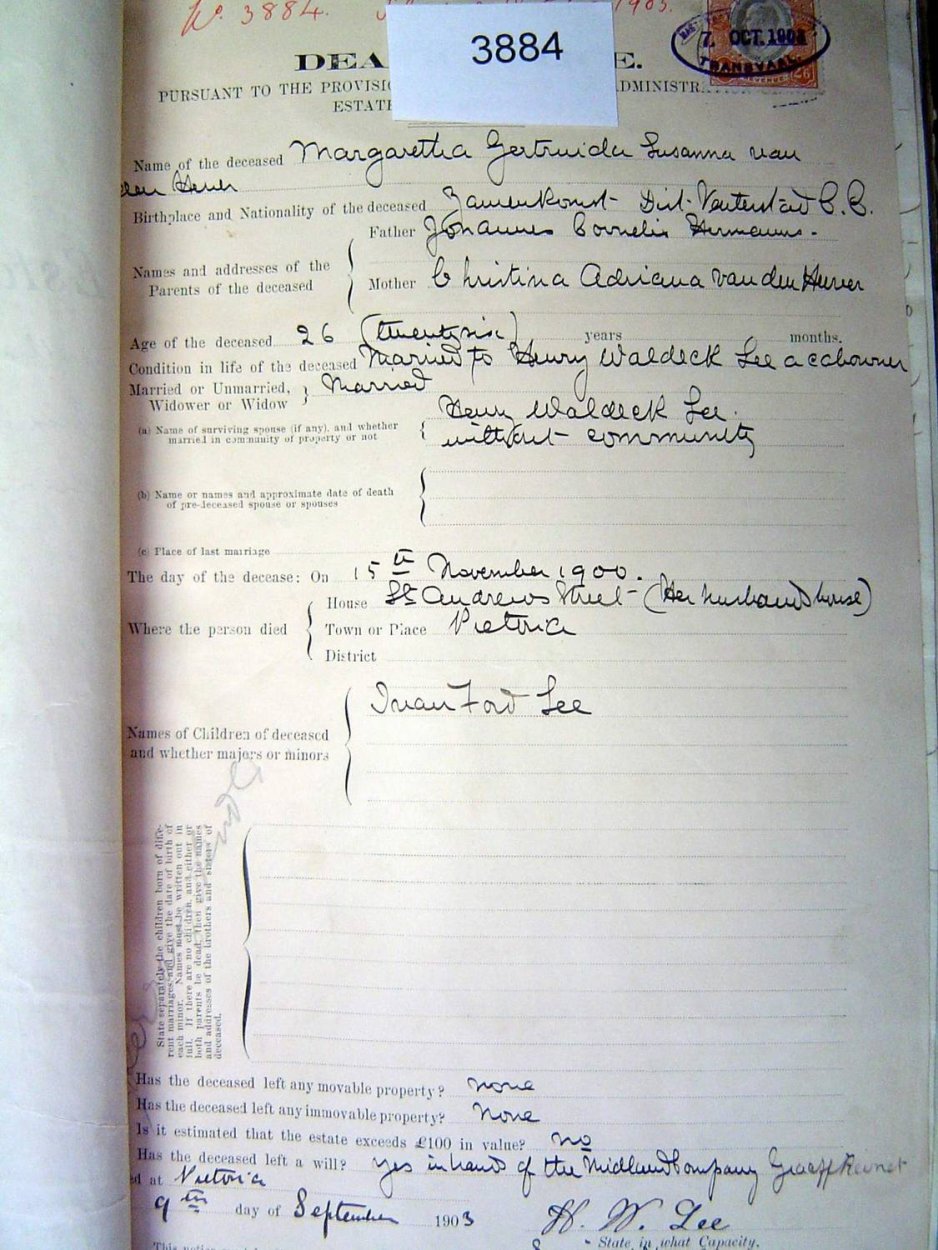 No. 3884.
1903.
3884
7. OCT. 1903
TRANSVAAL.
REVENUE 2/6
DEA E.
PURSUANT TO THE PROVISIO ADMINISTR
ESTATE
Name of the deceased Margaretha Gertruida Susanna van
den Hever
Birthplace and Nationality of the deceased Dist. Venterstad C.C.
Father Johannes Cornelis Hermanus.
Names and addresses of the
Parents of the deceased
Mother Christina Adriana van den Hever
Age of the deceased 26 (twenty six) years months.
Condition in life of the deceased Married to Henry Waldeck Lee a cabowner
Married or Unmarried, Married
Widower or Widow
(a) Name of surviving spouse (if any), and whether Henry Waldeck Lee.
married in community of property or not without community
(b) Name or names and approximate date of death
of pre-deceased spouse or spouses
(c) Place of last marriage
The day of the decease: On 15th November 1900.
House St Andrews Street - (Her husbands house)
Where the person died Town or Place Pretoria
District
Ivan Ford Lee
Names of Children of deceased
and whether majors or minors
State separately the children born of diffe-
rent marriages and give the date of birth of
each minor. Names must be written out in
full. If there are no children, and either or
both parents be dead, then give the names
and addresses of the brothers and sisters of
deceased.
Has the deceased left any movable property? none
Has the deceased left any immovable property? None
Is it estimated that the estate exceeds £100 in value? no
Has the deceased left a will? Yes in hands of the Midland Company Graaff Reinet
d at Pretoria
9th day of September 1903 H. W. Lee
State in what Capacity.